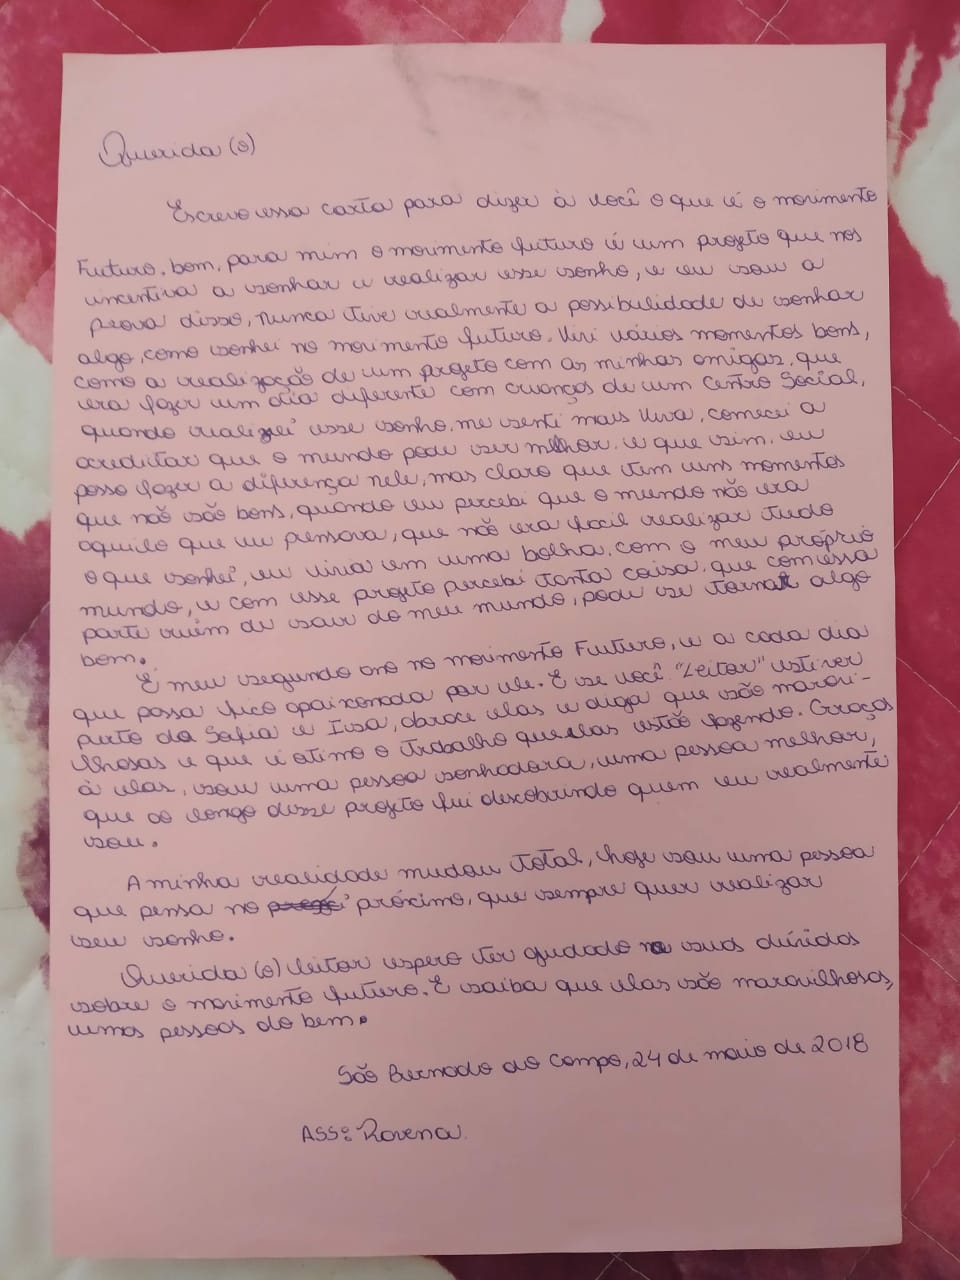 Querida (o)
Escrevo essa carta para dizer à você o que é o movimento
Futuro, bom, para mim o movimento futuro é um projeto que nos
incentiva a sonhar e realizar esse sonho, e eu sou a
prova disso, nunca tive realmente a possibilidade de sonhar
algo, como sonhei no movimento futuro. Vivi vários momentos bons,
como a realização de um projeto com as minhas amigas, que
era fazer um dia diferente com crianças de um Centro Social,
quando realizei esse sonho, me senti mais viva, comecei a
acreditar que o mundo pode ser melhor, e que sim, eu
posso fazer a diferença nele, mas claro que tem uns momentos
que não são bons, quando eu percebi que o mundo não era
aquilo que eu pensava, que não era facil realizar tudo
o que sonhei, eu vivia em uma bolha, com o meu próprio
mundo, e com esse projeto percebi tanta coisa, que com essa
parte ruém de sair do meu mundo, pode se tornar algo
bom.
E meu segundo ano no movimento Futuro, e a cada dia
que passa fico apaixonada por ele. E se você "Leitor" estiver
perto da Safia e Issa, abrace elas e diga que são maravi-
lhosas e que é otimo o trabalho que elas estão fazendo. Graças
à elas, sou uma pessoa sonhadora, uma pessoa melhor,
que ao longo desse projeto fui descobrindo quem eu realmente
sou.
A minha realidade mudou total, hoje sou uma pessoa
que pensa no próximo, que sempre quer realizar
seu sonho.
Querida (o) leitor espero ter ajudado na suas dúvidas
sobre o movimento futuro. E saiba que elas são maravilhosas,
umas pessoas do bem.
São Bernado do Campo, 24 de maio de 2018
ASS: Rovena